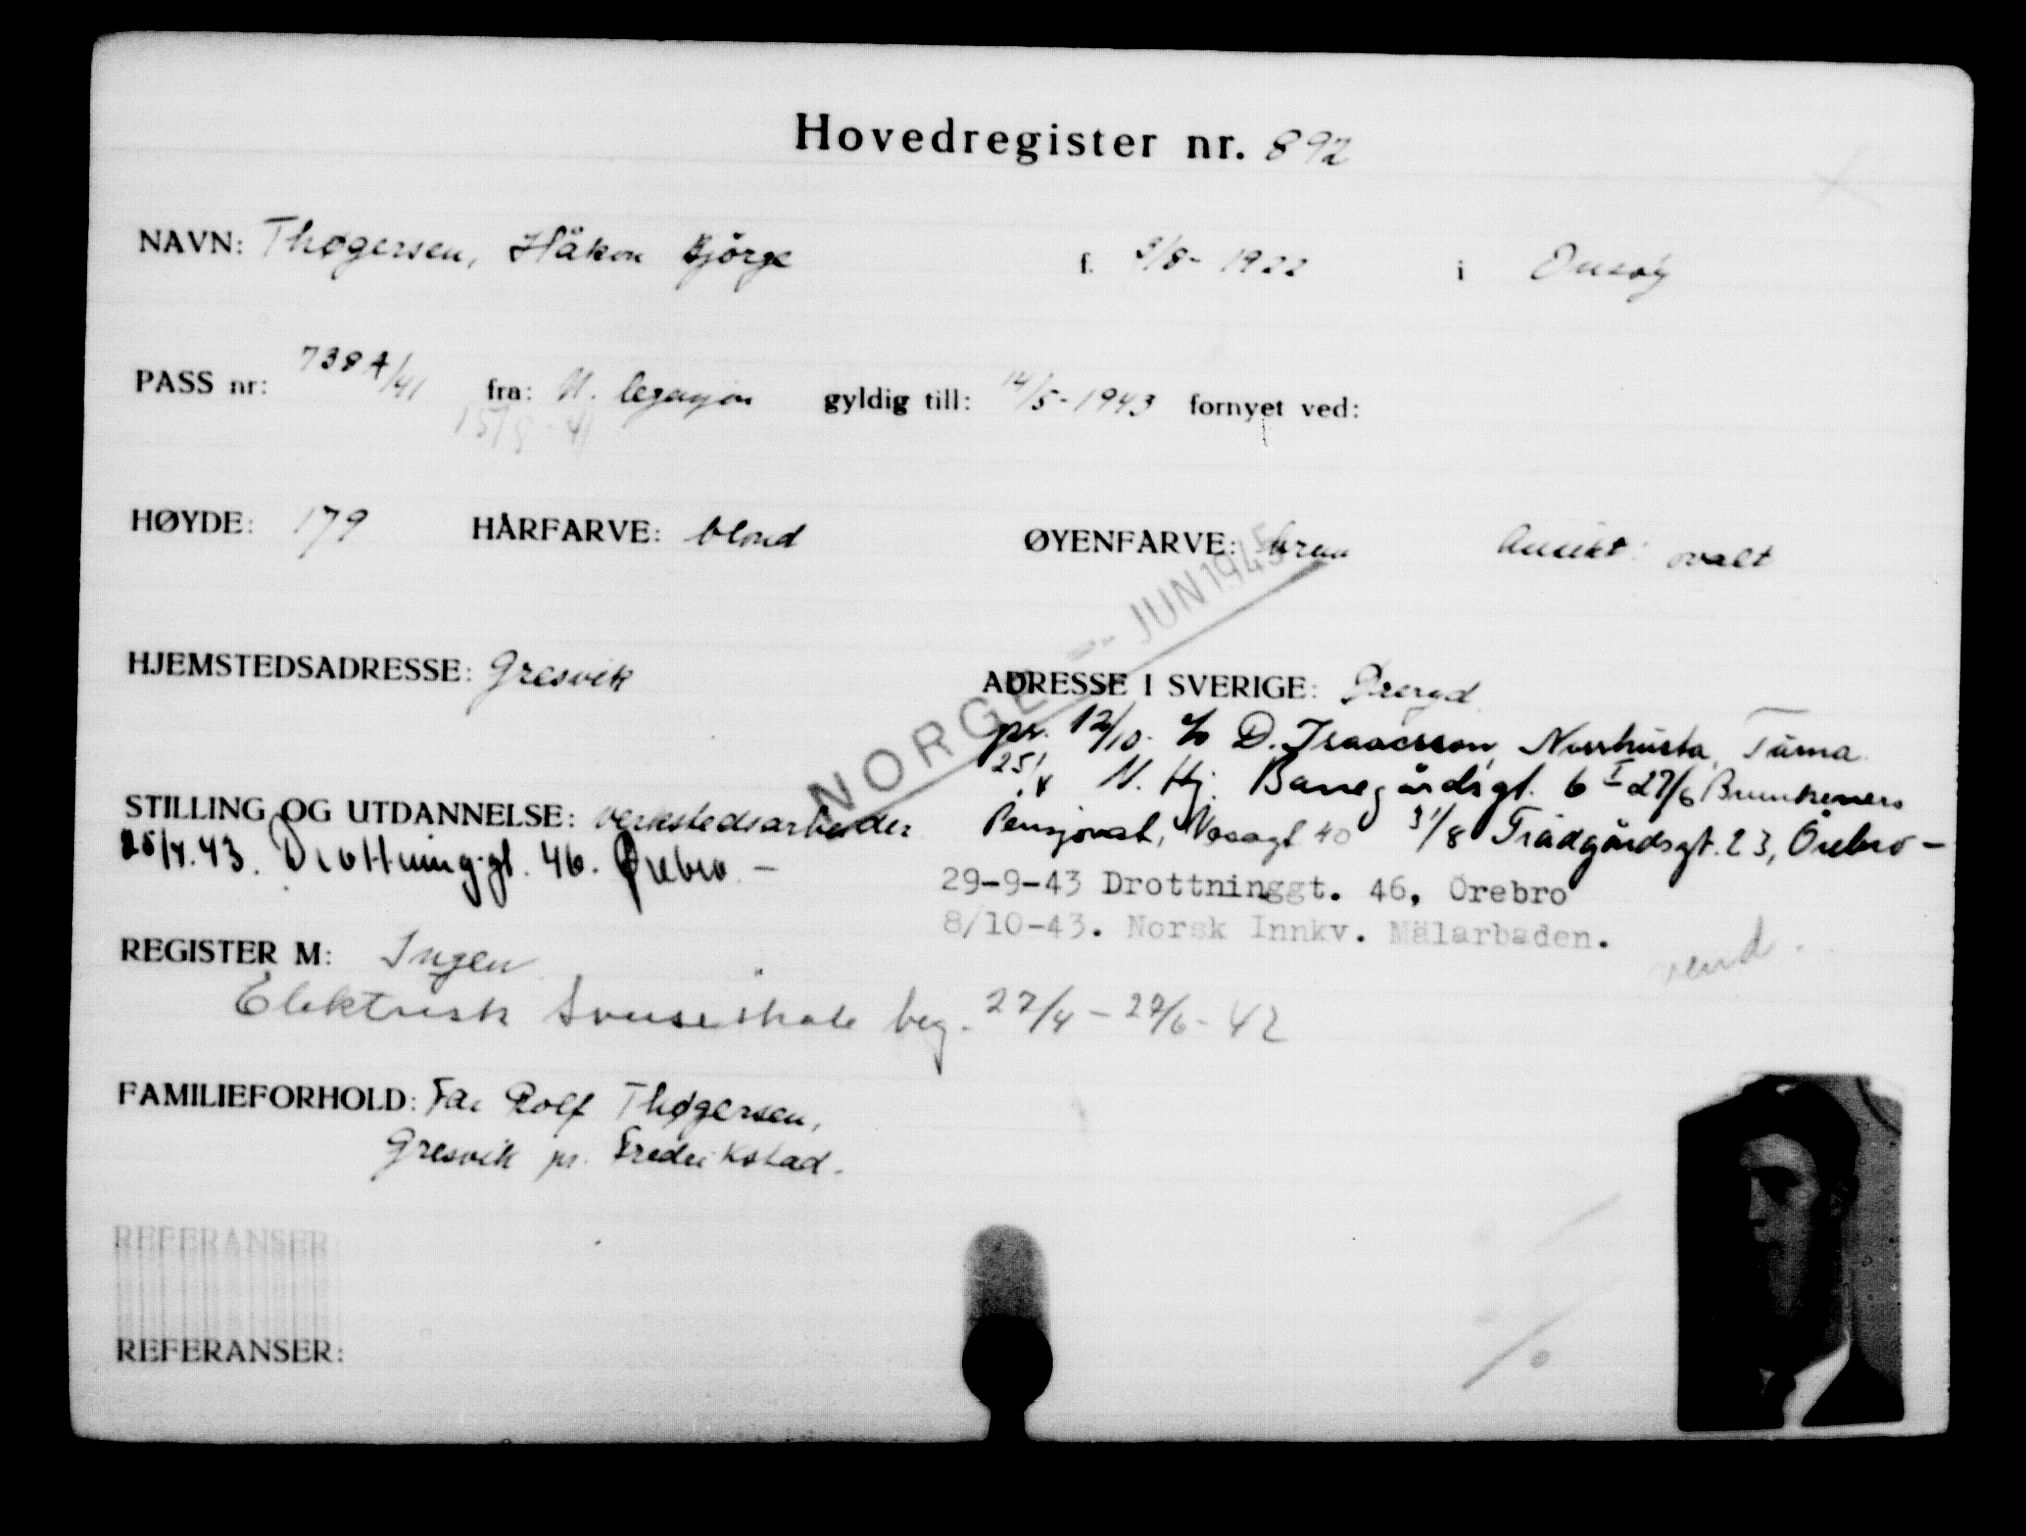 Hovedregister nr. 892
NAVN: Thøgersen, Håkon Bjørge f. 3/8- 1922 i Onsøy
PASS nr: 738 A/41 fra: N. legasjon gyldig till: 14/5-1943 fornyet ved:
HØYDE: 179 HÅRFARVE: blond ØYENFARVE: Ansikt: ovalt
NORGE JUN 1945
HJEMSTEDSADRESSE: Gresvik ADRESSE I SVERIGE:
pr. 12/10. c/o D. Isaacsson, Tumba
N. Hj. Banegårdsgt. 6 I 27/6 Brunkebergs
STILLING OG UTDANNELSE: verkstedsarbeider Pensjonat, Vasagt 40 31/8 Trädgårdsgt. 23, Örebro -
25/4.43. Drottninggt. 46. Ørebro. -
29-9-43 Drottninggt. 46, Örebro
8/10-43. Norsk Innkv. Mälarbaden.
vend.
REGISTER M: Ingen
Elektrisk Sveiseskole beg. 27/4 - 29/6 - 42
FAMILIEFORHOLD: Far Rolf Thøgersen,
Gresvik pr. Fredrikstad.
REFERANSER
REFERANSER: